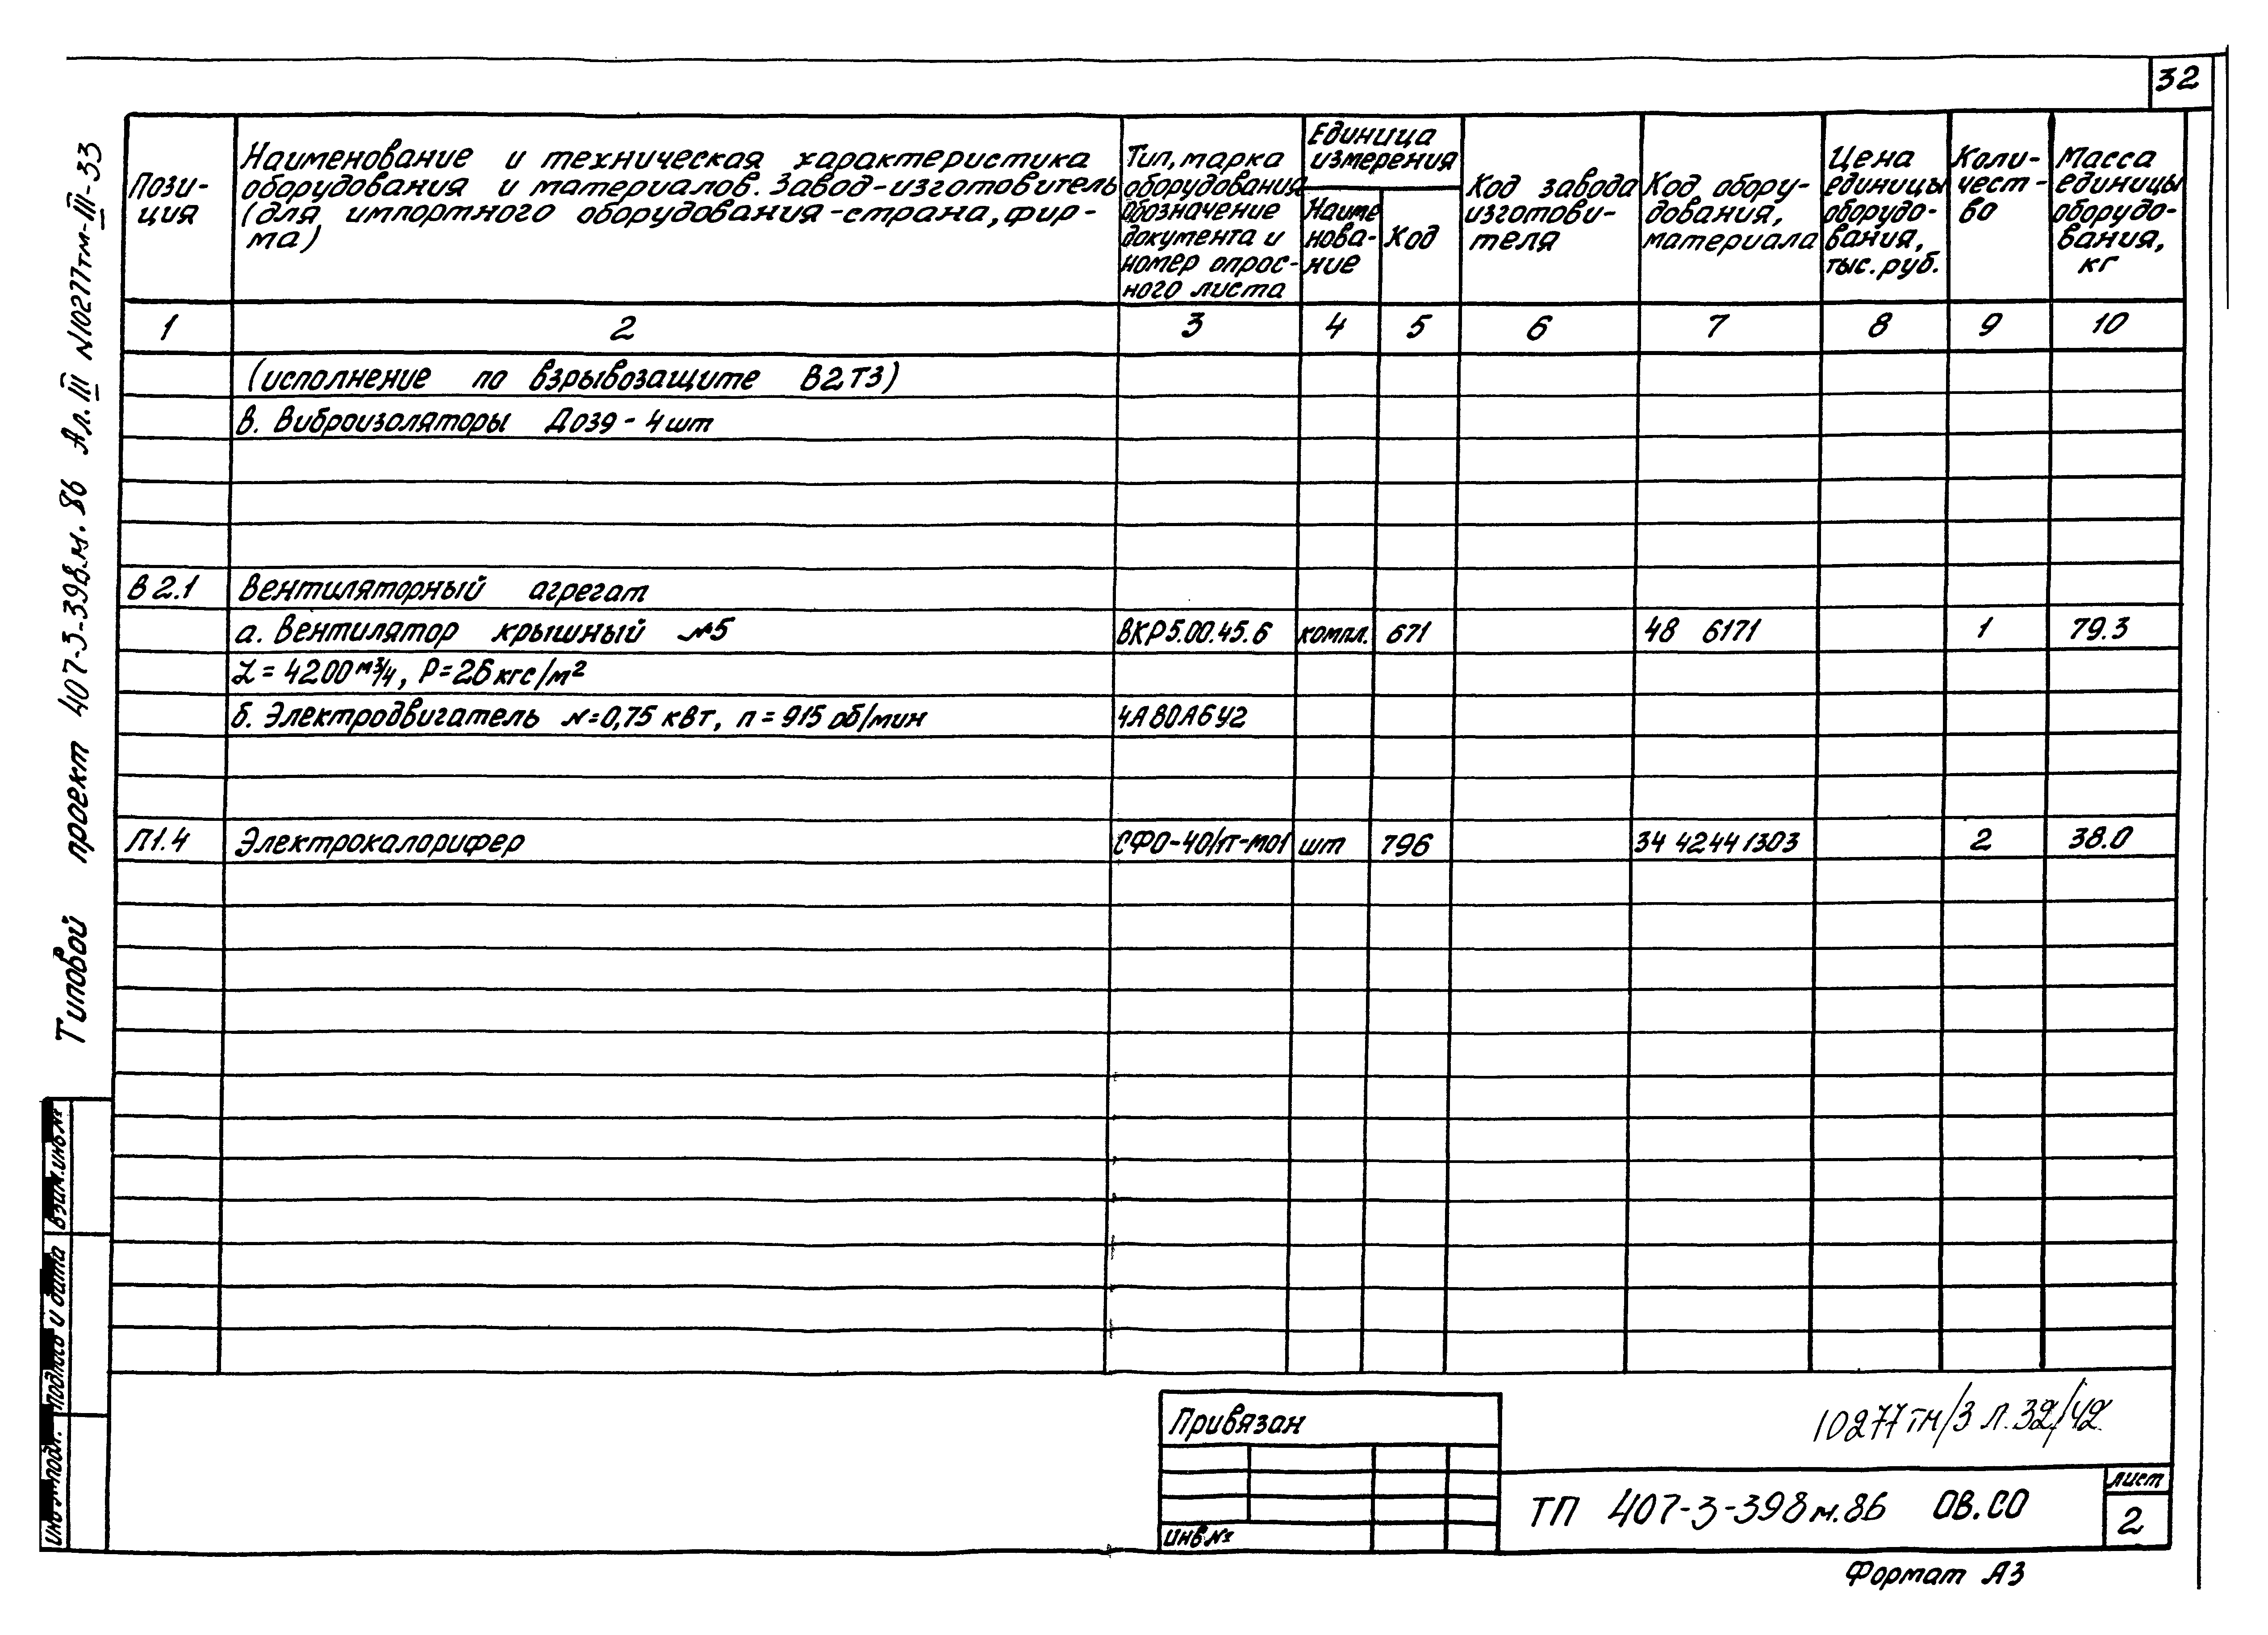 32
Типовой проект 407-3-398м.86 Ал.III N10277тм-III-33
Пози-
ция
Наименование и техническая характеристика
оборудования и материалов. Завод-изготовитель
(для импортного оборудования-страна, фир-
ма)
Тип, марка
оборудования
обозначение
документа и
номер опрос-
ного листа
Единица
измерения
Наиме
нова-
ние
Код
Код завода
изготови-
теля
Код обору-
дования,
материала
Цена
единицы
оборудо-
вания,
тыс. руб.
Коли-
чест-
во
Масса
единицы
оборудо-
вания,
кг
1 2 3 4 5 6 7 8 9 10
(исполнение по взрывозащите В2Т3)
в. Виброизоляторы ДО39 - 4 шт
В 2.1 Вентиляторный агрегат
а. Вентилятор крышный №5 ВКР5.00.45.6 компл. 671 48 6171 1 79.3
L = 4200 м³/ч, P = 26 кгс/м²
б. Электродвигатель N=0,75 кВт, n = 915 об/мин 4А80А6У2
П1.4 Электрокалорифер СФО-40/1Т-М01 шт 796 34 4244 1303 2 38.0
Взим.инв.№
Подпись и дата
Инв.№подл.
Привязан
Инв.№
10277тм/3 л.32/42
ТП 407-3-398м.86 ОВ.СО
лист
2
Формат А3